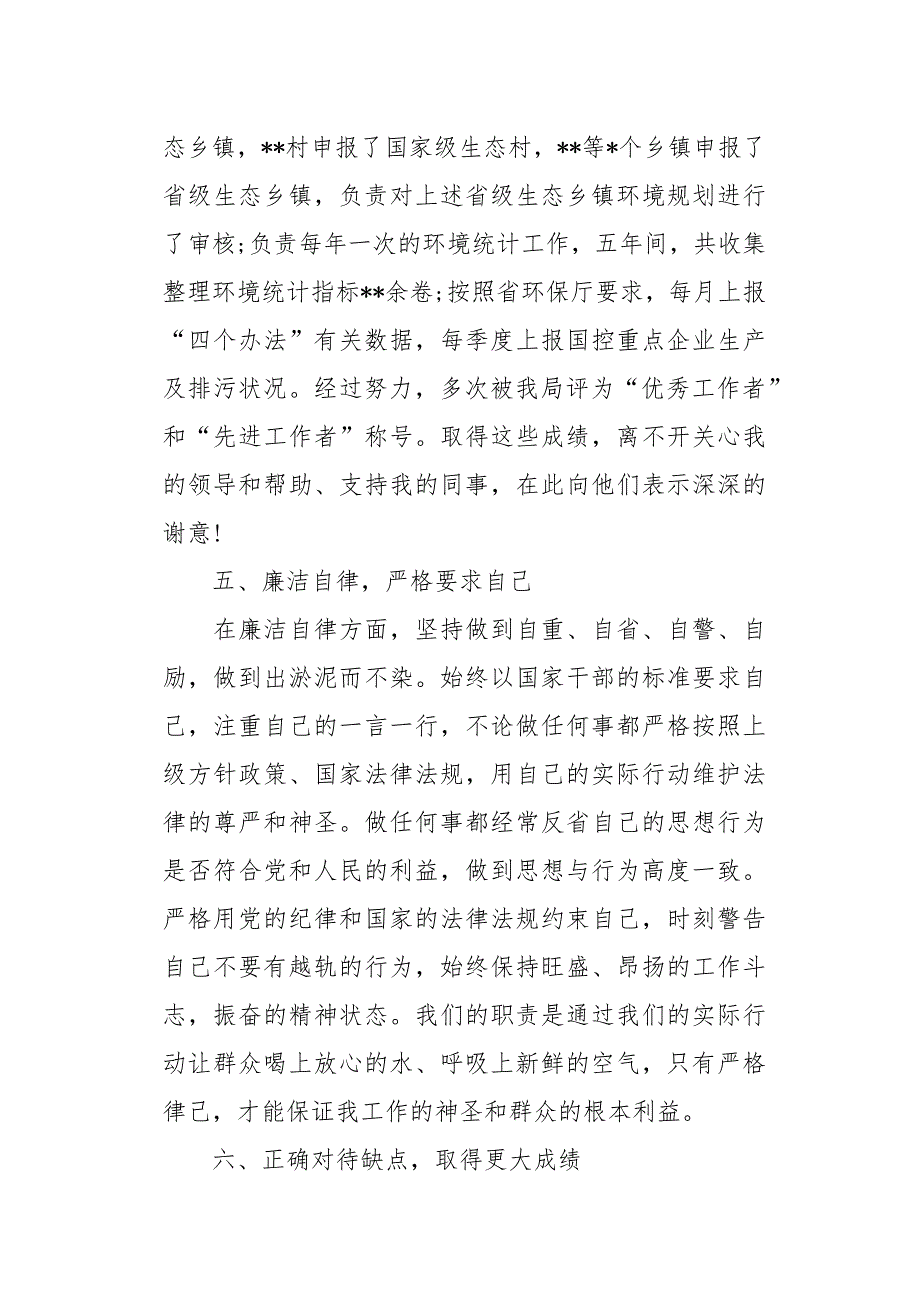 态乡镇，**村申报了国家级生态村，**等*个乡镇申报了
省级生态乡镇，负责对上述省级生态乡镇环境规划进行
了审核;负责每年一次的环境统计工作，五年间，共收集
整理环境统计指标**余卷;按照省环保厅要求，每月上报
“四个办法”有关数据，每季度上报国控重点企业生产
及排污状况。经过努力，多次被我局评为“优秀工作者”
和“先进工作者”称号。取得这些成绩，离不开关心我
的领导和帮助、支持我的同事，在此向他们表示深深的
谢意!
五、廉洁自律，严格要求自己
在廉洁自律方面，坚持做到自重、自省、自警、自
励，做到出淤泥而不染。始终以国家干部的标准要求自
己，注重自己的一言一行，不论做任何事都严格按照上
级方针政策、国家法律法规，用自己的实际行动维护法
律的尊严和神圣。做任何事都经常反省自己的思想行为
是否符合党和人民的利益，做到思想与行为高度一致。
严格用党的纪律和国家的法律法规约束自己，时刻警告
自己不要有越轨的行为，始终保持旺盛、昂扬的工作斗
志，振奋的精神状态。我们的职责是通过我们的实际行
动让群众喝上放心的水、呼吸上新鲜的空气，只有严格
律己，才能保证我工作的神圣和群众的根本利益。
六、正确对待缺点，取得更大成绩